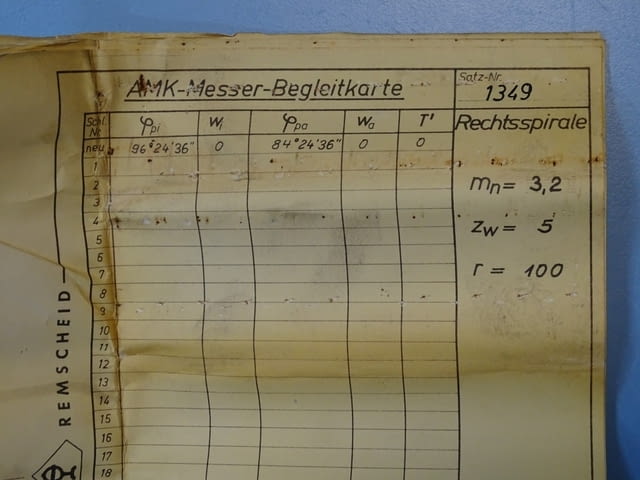 AMK-Messer-Begleitkarte
Satz-Nr.
1349
Schl. Nr. φpi Wi φpa Wa T'
neu 96°24'36" 0 84°24'36" 0 0
1
2
3
4
5
6
7
8
9
10
11
12
13
14
15
16
17
18
Rechtsspirale
mn = 3,2
zw = 5
r = 100
REMSCHEID